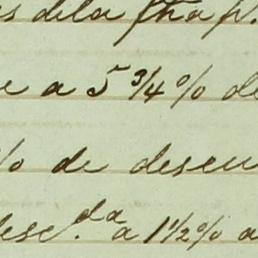 dela fha p.
e a 5 3/4 % de
% de descu
desc.da a 1 1/2 % a